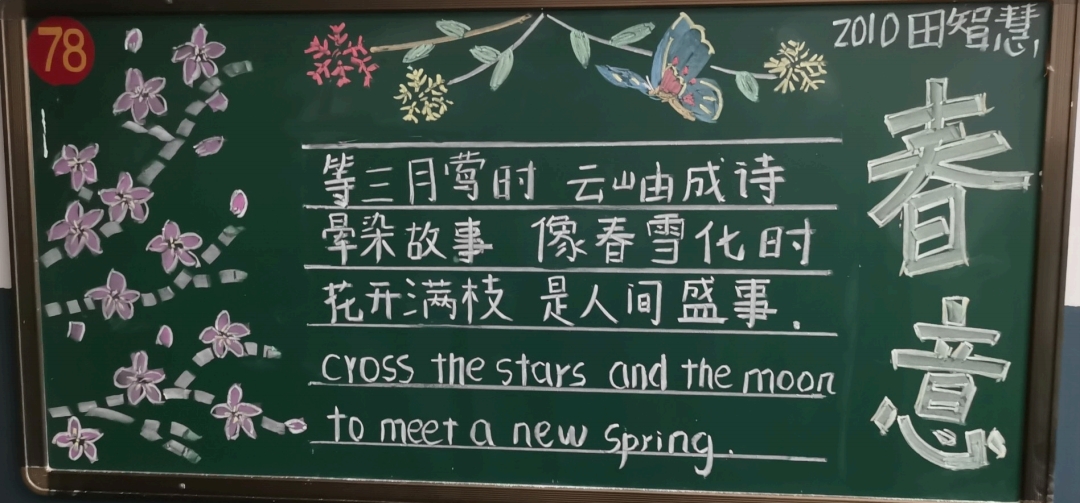 78
2010田智慧
春意
等三月莺时 云岫成诗
晕染故事 像春雪化时
花开满枝 是人间盛事.
cross the stars and the moon
to meet a new spring.